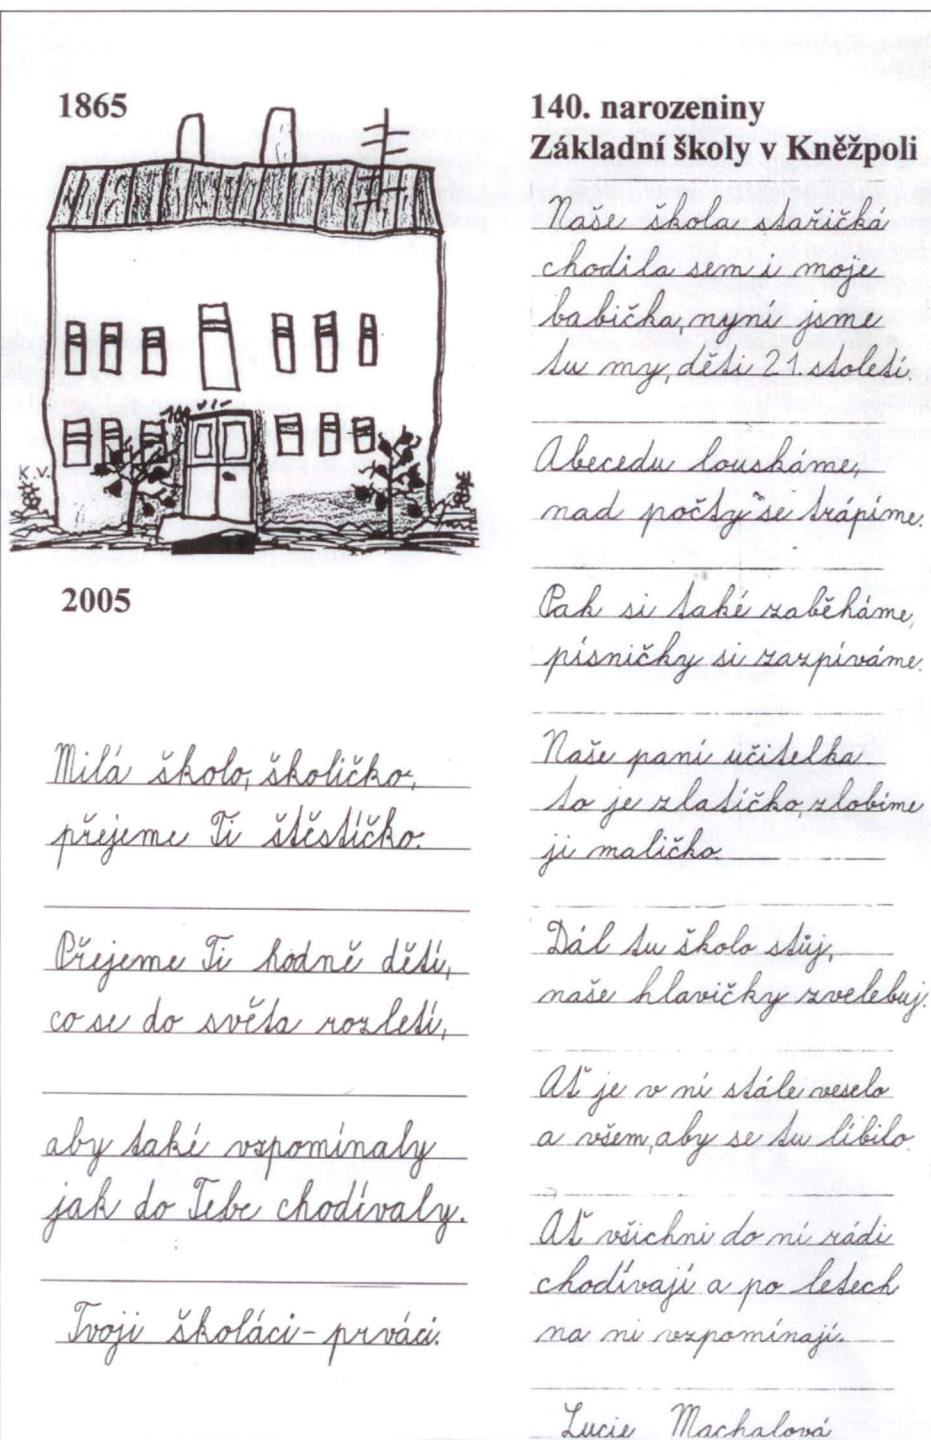 1865
K.V.
2005
Milá školo, školičko,
přejeme Ti štěstíčko.
Přejeme Ti hodně dětí,
co se do světa rozletí,
aby také vzpomínaly
jak do Tebe chodívaly.
Tvoji školáci - prváci.
140. narozeniny
Základní školy v Kněžpoli
Naše škola stařičká
chodila sem i moje
babička, nyní jsme
tu my, děti 21 století.
Abecedu louskáme,
nad počty se trápíme.
Pak si také zaběháme,
písničky si zazpíváme.
Naše paní učitelka
to je zlatíčko, zlobíme
ji maličko.
Dál tu školo stůj,
naše hlavičky zvelebuj.
Ať je v ní stále veselo
a všem, aby se tu líbilo.
Ať všichni do ní rádi
chodívají a po letech
na ni vzpomínají.
Lucie Machalová